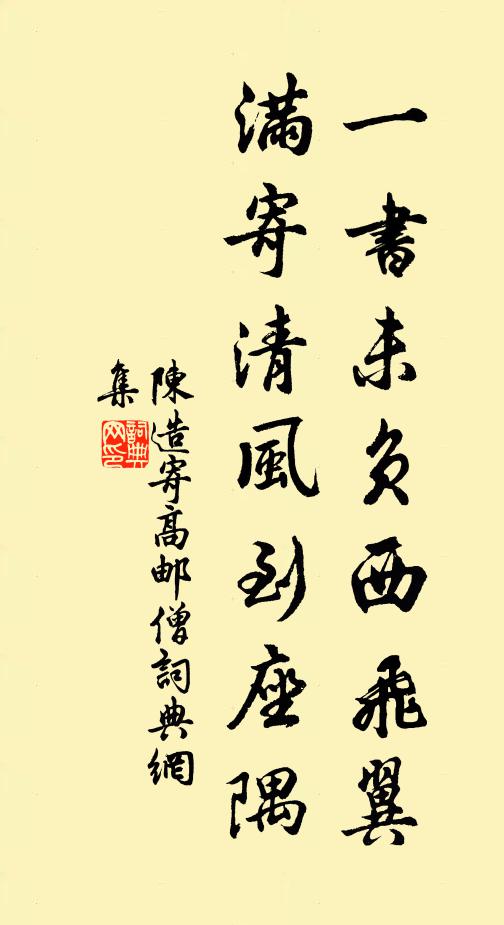 一書未負西飛翼
滿寄清風到座隅
陳造寄高邮僧詞典網
集
詞典
网印